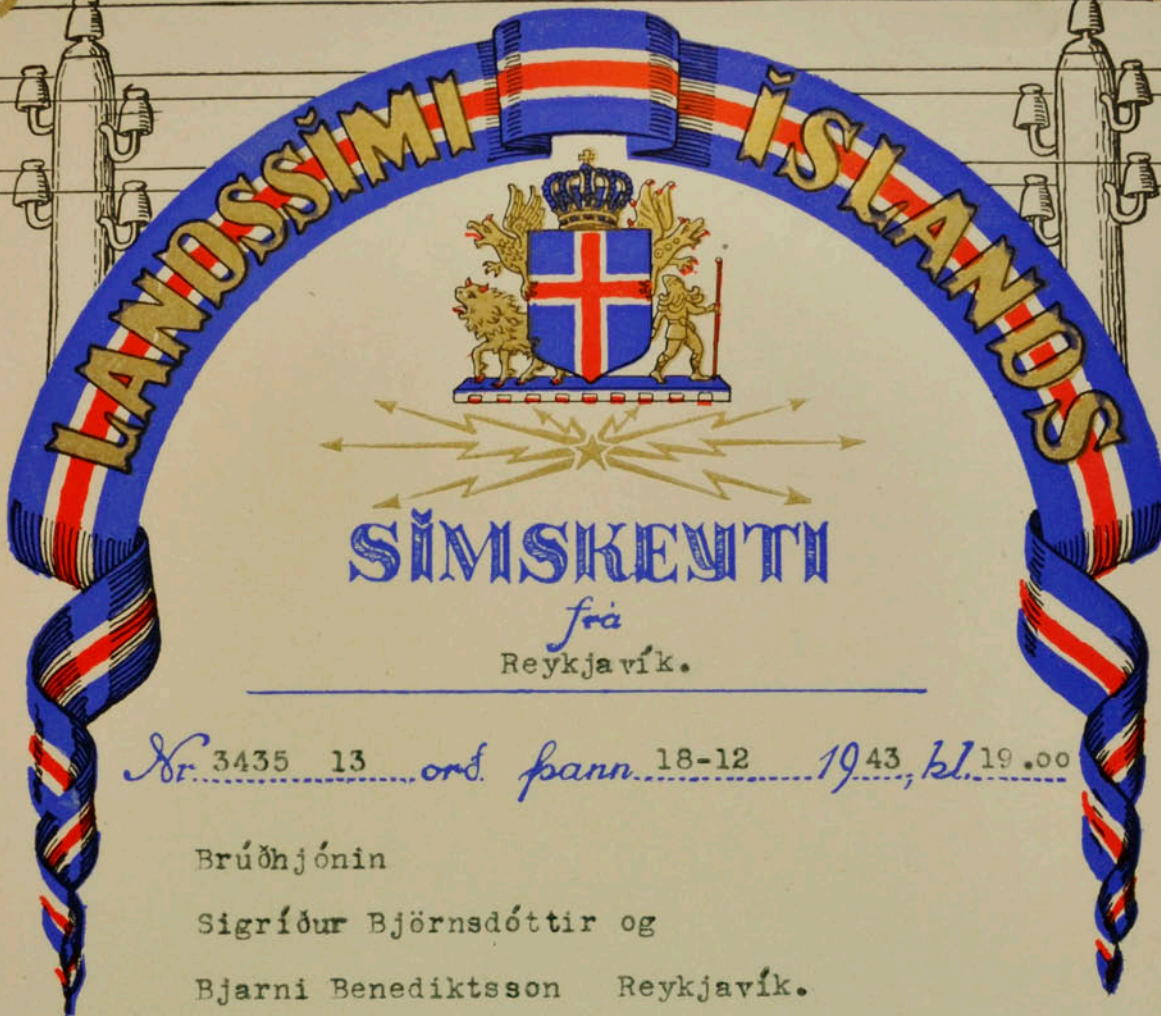 LANDSSÍMI ÍSLANDS
SÍMSKEYTI
frá
Reykjavík.
Nr. 3435 13 orð. þann 18-12 1943, kl. 19.00
Brúðhjónin
Sigríður Björnsdóttir og
Bjarni Benediktsson Reykjavík.